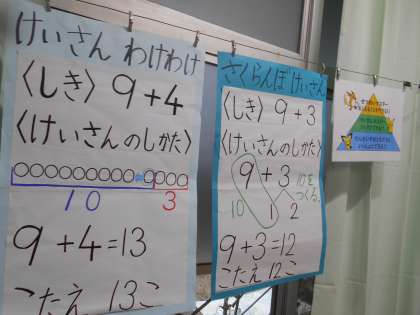 けいさん わけわけ
〈しき〉 9+4
〈けいさんのしかた〉
10 3
9+4=13
こたえ 13こ
さくらんぼ けいさん
〈しき〉 9+3
〈けいさんのしかた〉
9+3
10 1 2
10を
つくる。
9+3=12
こたえ 12こ